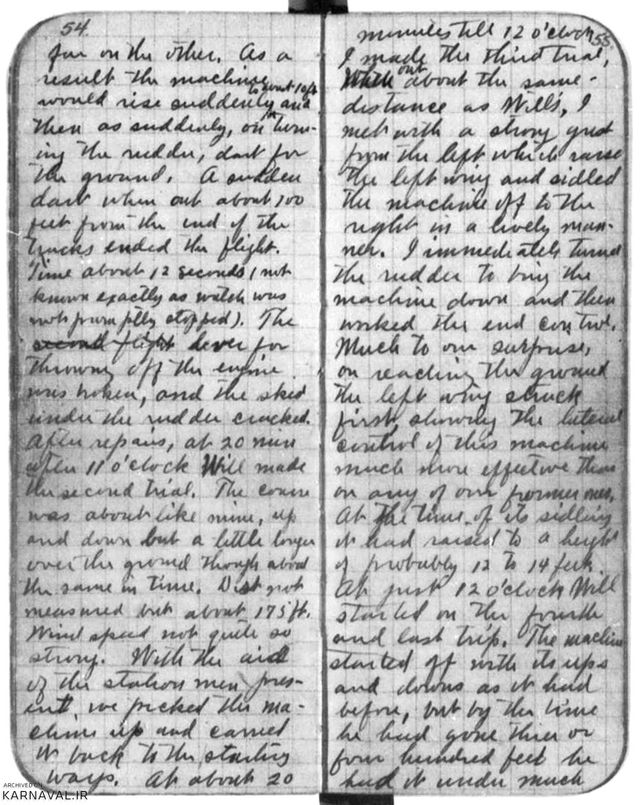 54
far on the other. As a
result the machine
would rise suddenly to about 10 ft. and
then as suddenly, on turn-
ing the rudder, dart for
the ground. A sudden
dart when out about 100
feet from the end of the
tracks ended the flight.
Time about 12 seconds (not
known exactly as watch was
not promptly stopped). The
second flight lever for
throwing off the engine
was broken, and the skid
under the rudder cracked.
After repairs, at 20 min
after 11 o'clock Will made
the second trial. The course
was about like mine, up
and down but a little longer
over the ground though about
the same in time. Dist not
measured but about 175 ft.
Wind speed not quite so
strong. With the aid
of the station men pres-
ent, we picked the ma-
chine up and carried
it back to the starting
ways. At about 20
55
minutes till 12 o'clock
I made the third trial,
When out about the same
distance as Will's, I
met with a strong gust
from the left which raised
the left wing and sidled
the machine off to the
right in a lively man-
ner. I immediately turned
the rudder to bring the
machine down and then
worked the end control.
Much to our surprise,
on reaching the ground
the left wing struck
first, showing the lateral
control of this machine
much more effective than
on any of our former ones.
At the time of its sidling
it had raised to a height
of probably 12 to 14 feet.
At just 12 o'clock Will
started on the fourth
and last trip. The machine
started off with its ups
and downs as it had
before, but by the time
he had gone three or
four hundred feet he
had it under much
ARCHIVED ON
KARNAVAL.IR